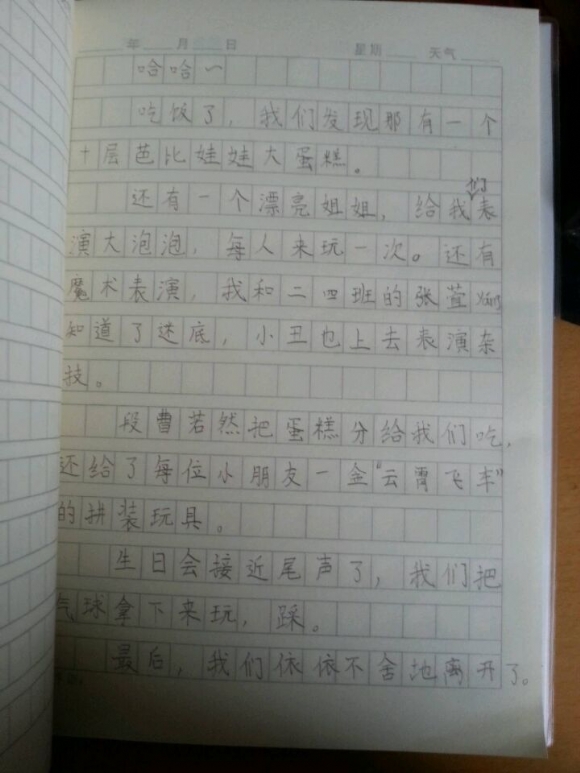 年 月 日 星期 天气
哈哈~
吃饭了，我们发现那有一个
十层芭比娃娃大蛋糕。
还有一个漂亮姐姐，给我们表
演大泡泡，每人来玩一次。还有
魔术表演，我和二四班的张萱
知道了达底，小丑也上去表演杂
技。
段曹若然把蛋糕分给我们吃，
还给了每位小朋友一盒“云霄飞车”
的拼装玩具。
生日会接近尾声了，我们把
气球拿下来玩，踩。
最后，我们依依不舍地离开了。